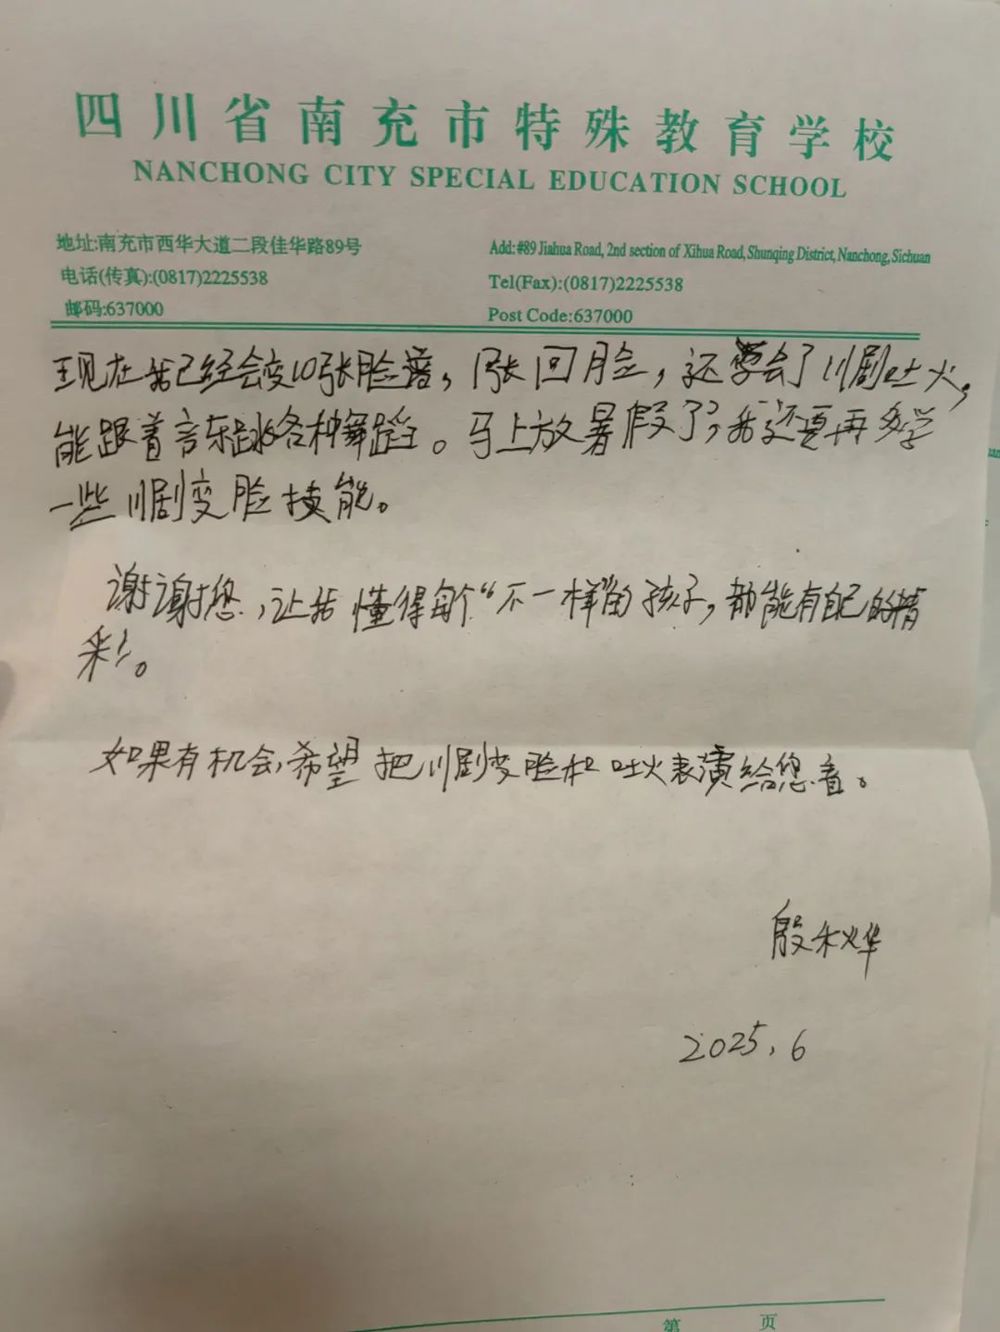 四川省南充市特殊教育学校
NANCHONG CITY SPECIAL EDUCATION SCHOOL
地址:南充市西华大道二段佳华路89号
Add:#89 Jiahua Road, 2nd section of Xihua Road, Shunqing District, Nanchong, Sichuan
电话(传真):(0817)2225538
Tel(Fax):(0817)2225538
邮码:637000
Post Code:637000
现在我已经会变10张脸谱，1张回脸，还学会了川剧吐火，
能跟着音乐跳各种舞蹈。马上放暑假了，我还要再多学
一些川剧变脸技能。
谢谢您，让我懂得每个“不一样”的孩子，都能有自己的精
彩。
如果有机会，希望把川剧变脸和吐火表演给您看。
殷秋烨
2025.6
第 页